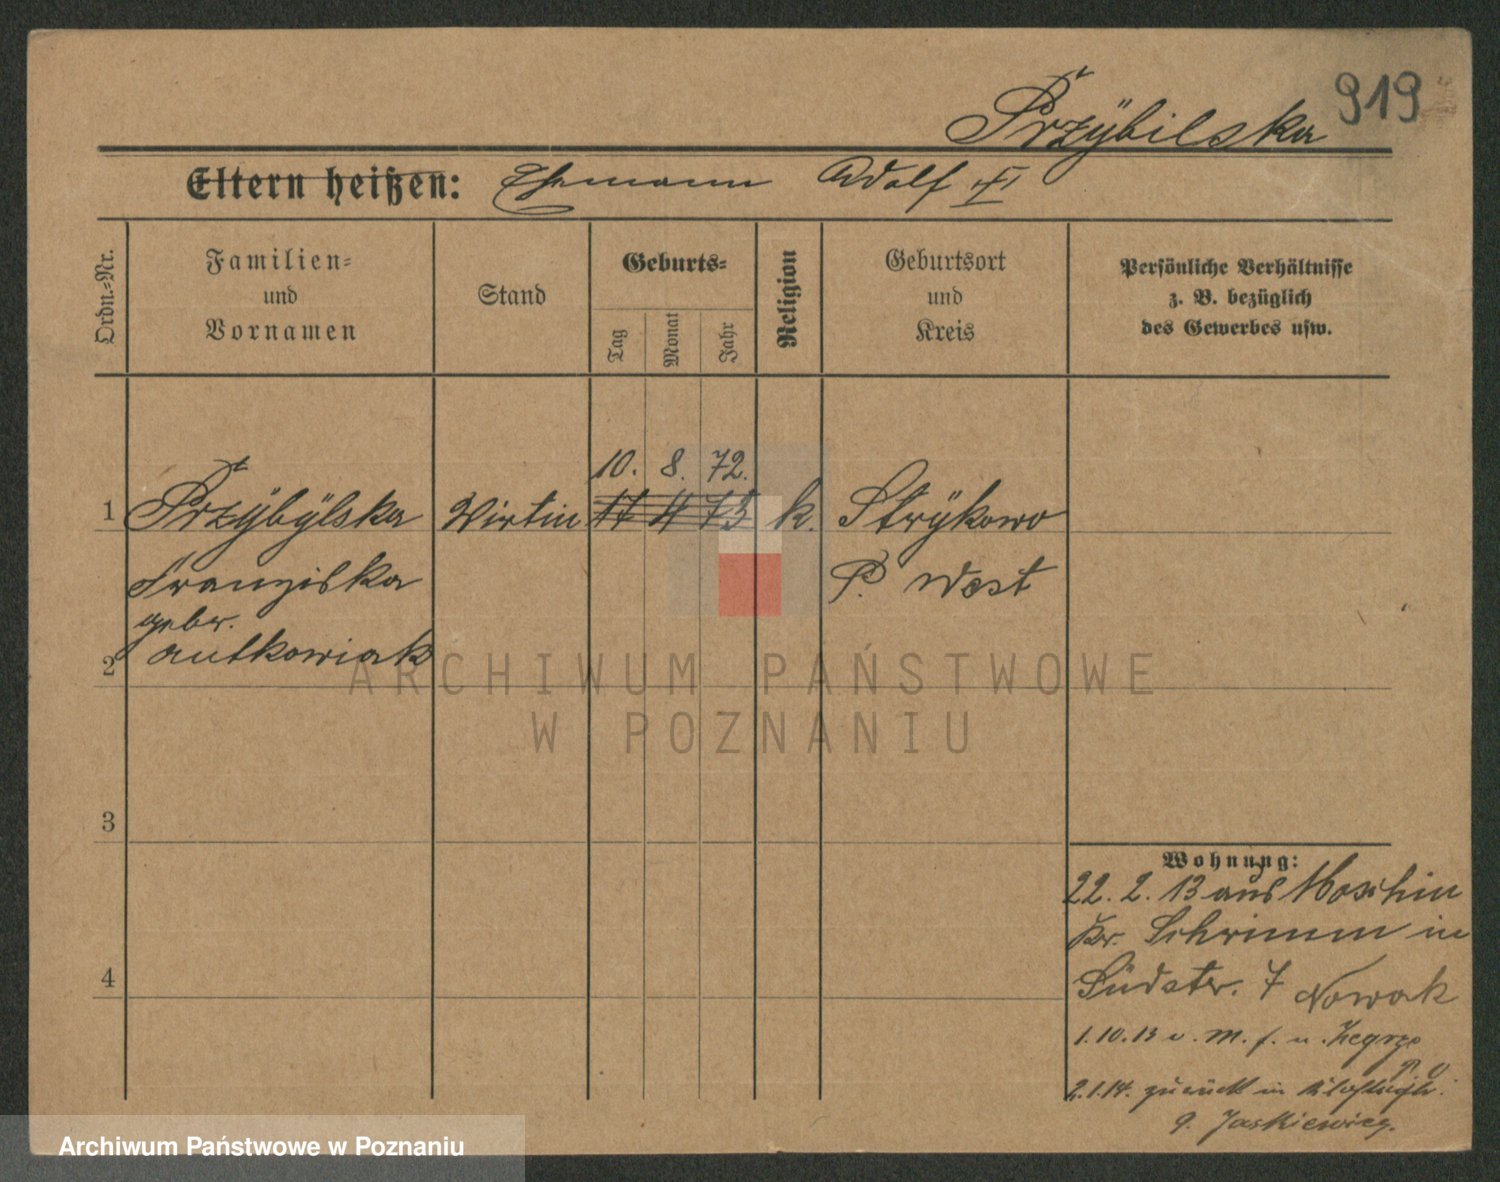 919
Przÿbilska
Eltern heißen: Ehemann Adolf
Ordn.-Nr.
Familien-
und
Vornamen
Stand
Geburts-
Tag
Monat
Jahr
Religion
Geburtsort
und
Kreis
Persönliche Verhältnisse
z. B. bezüglich
des Gewerbes usw.
10. 8. 72.
1 Przÿbÿlska Wirtin 11 4 73 k. Strÿkowo
Franziska P. West
gebr.
2 Antkowiak
ARCHIWUM PAŃSTWOWE
W POZNANIU
3
Wohnung:
22. 2. 13 aus Moschin
Kr. Schrimm in
4 Südstr. 7 Nowak
1.10.13 v. M. f. n. Zegrze
2.1.14. zurück in
9. Jaskiewicz.
Archiwum Państwowe w Poznaniu